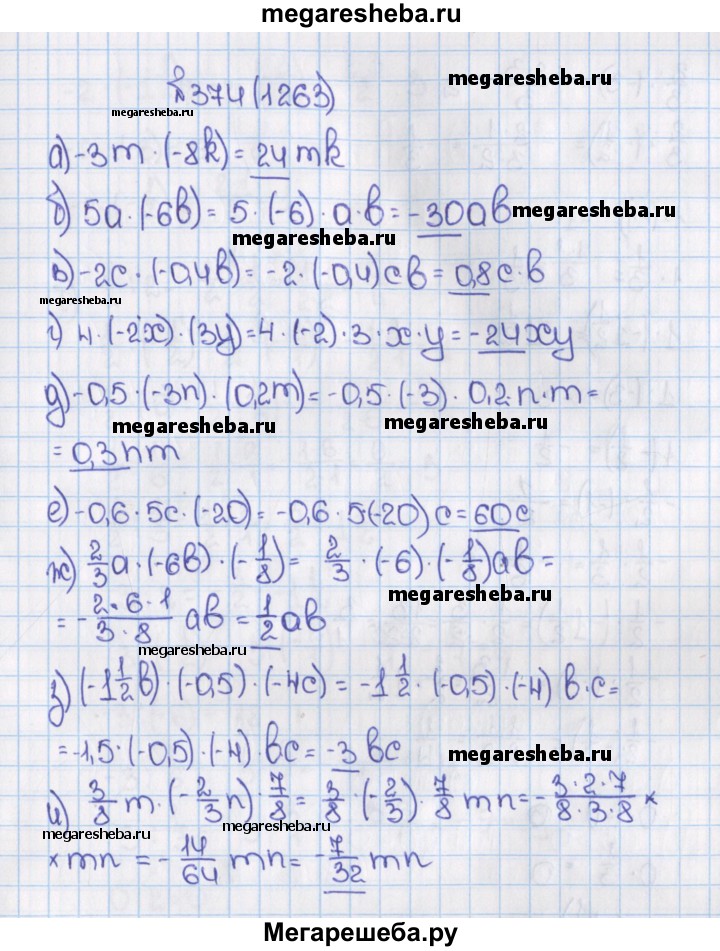 megaresheba.ru
№374(1263)
megaresheba.ru
megaresheba.ru
а) -3m·(-8k)= 24mk
б) 5a·(-6b)= 5·(-6)·a·b= -30ab
megaresheba.ru
megaresheba.ru
в) -2c·(-0,4b)= -2·(-0,4)cb= 0,8c·b
megaresheba.ru
г) 4·(-2x)·(3y)=4·(-2)·3·x·y= -24xy
д) -0,5·(-3n)·(0,2m)= -0,5·(-3)·0,2·n·m=
megaresheba.ru
megaresheba.ru
= 0,3nm
е) -0,6·5c·(-20)= -0,6·5(-20)c= 60c
ж) 2/3a·(-6b)·(-1/8)= 2/3·(-6)·(-1/8)ab=
megaresheba.ru
= -2·6·1/3·8 ab = 1/2ab
megaresheba.ru
з) (-1 1/2b)·(-0,5)·(-4c)= -1 1/2·(-0,5)·(-4)b·c=
= -1,5·(-0,5)·(-4)·bc= -3bc
megaresheba.ru
и) 3/8m·(-2/3n)·7/8= 3/8·(-2/3)·7/8mn= -3·2·7/8·3·8×
megaresheba.ru
megaresheba.ru
×mn = -14/64mn= -7/32mn
Мегарешеба.ру